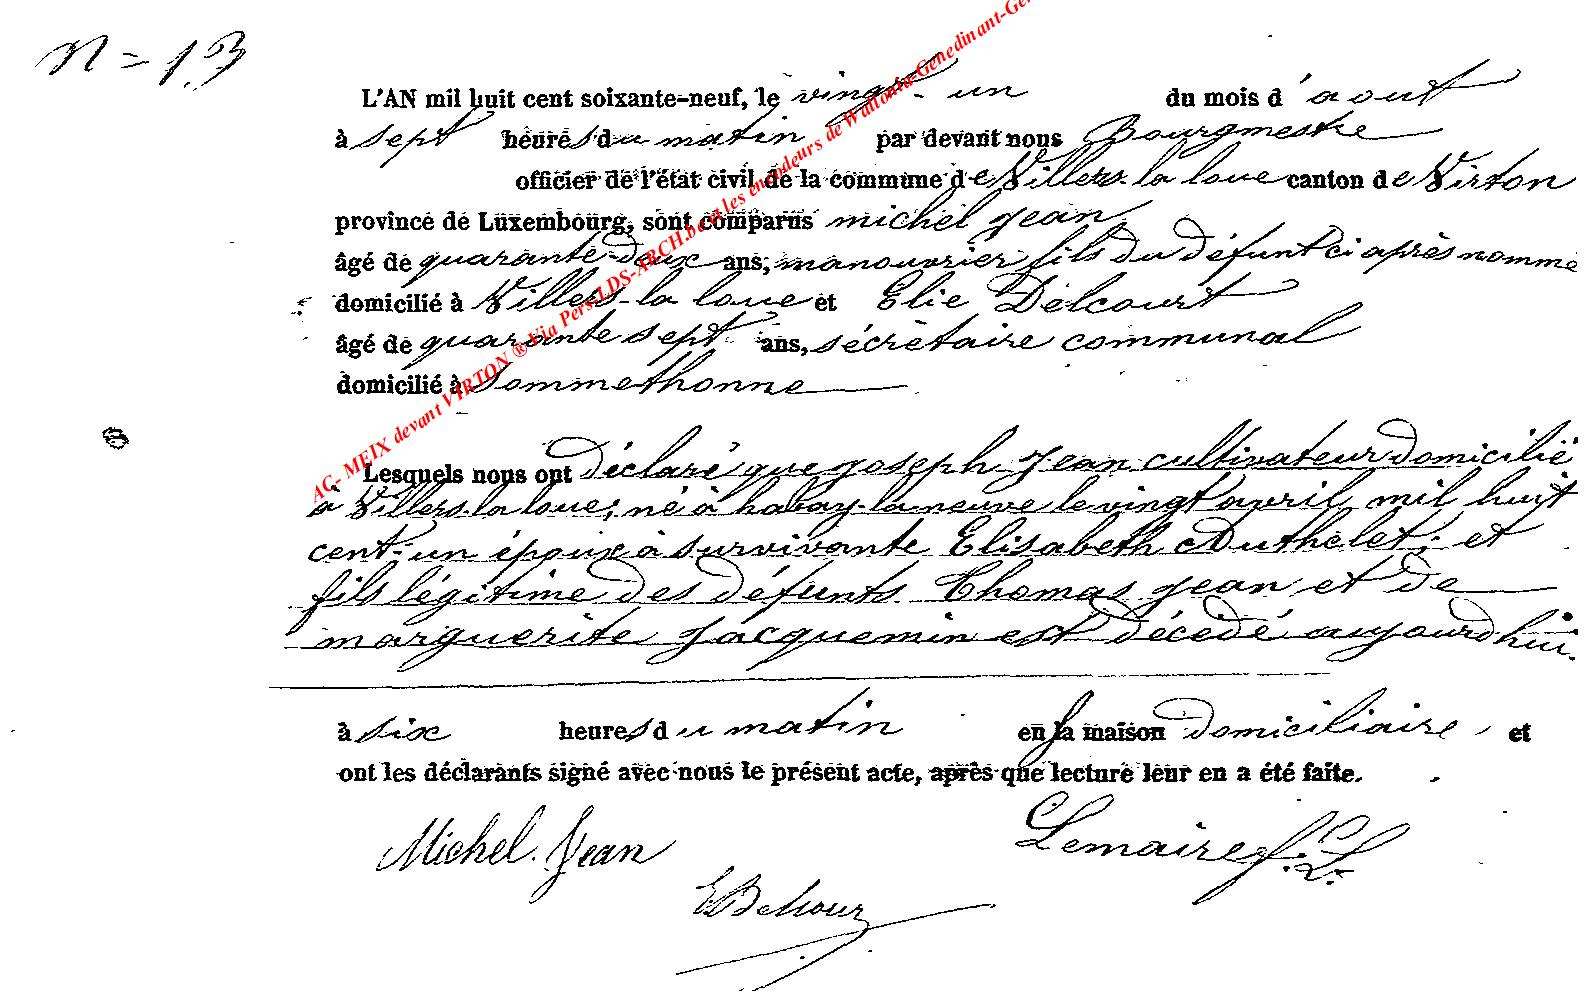 N = 13
L'AN mil huit cent soixante-neuf, le vingt-un du mois d'aout
à sept heures du matin par devant nous Bourgmestre
officier de l'état civil de la commune de Villers-la loue canton de Virton
province de Luxembourg, sont comparus michel jean
âgé de quarante-deux ans, manouvrier fils du défunt ci après nommé
domicilié à Villers-la loue et Elie Delcourt
âgé de quarante sept ans, sécrètaire communal
domicilié à Sommethonne
Lesquels nous ont déclaré que joseph Jean cultivateur domicilié
à Villers-la loue; né à habay-la neuve le vingt avril mil huit
cent-un époux à survivante Elisabeth Duthelet; et
fils légitime des défunts Thomas jean et de
marguerite Jacquemin est décédé aujourd hui
à six heures du matin en sa maison domiciliaire, et
ont les déclarants signé avec nous le présent acte, après que lecture leur en a été faite.
Michel Jean Lemaire
AG-MEIX devant VIRTON ® Via Pers LDS-ARCH.be et les encodeurs de Wallonia-Genedinant-Ge